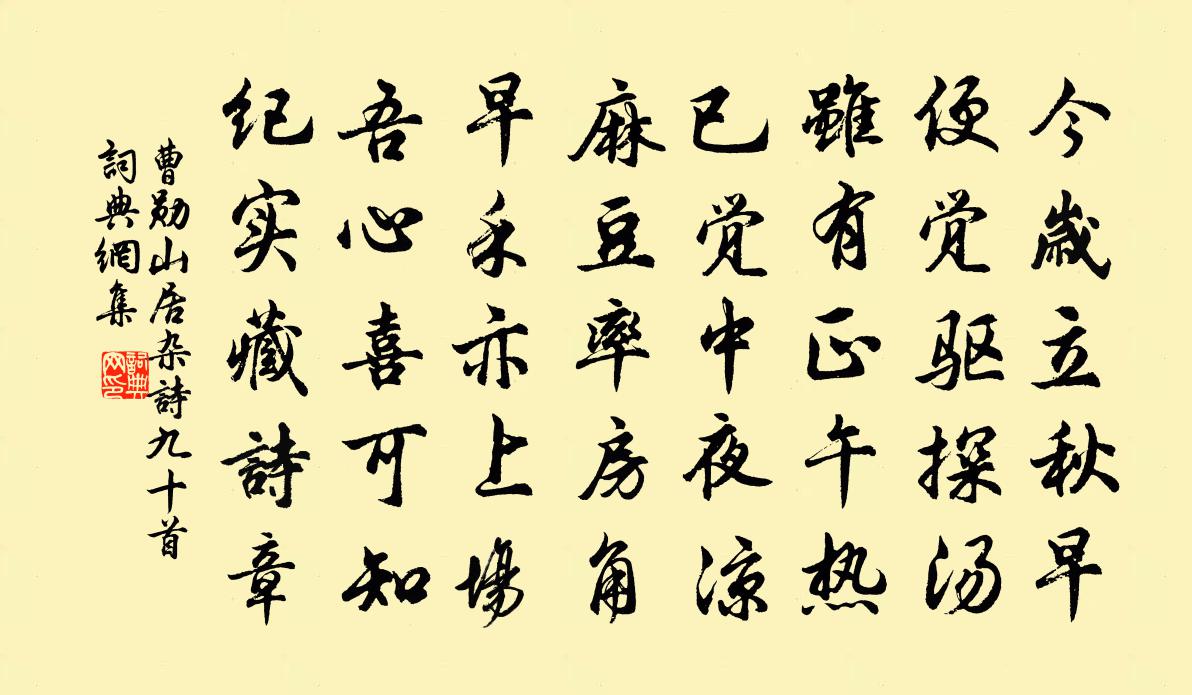 今歲立秋早
便觉驱探汤
雖有正午热
已觉中夜凉
麻豆率房角
早禾亦上場
吾心喜可知
纪实藏詩章
曹勋山居杂詩九十首
詞典網集
詞典網印